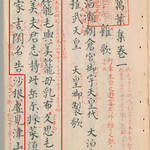 萬葉集卷一
雜歌
泊瀬朝倉宮御宇天皇代 大泊
稚武天皇
天皇御製歌
籠毛與美籠母乳布久思毛
美夫君志持此岳尓菜採須
家吉閑名告沙根虚見津山